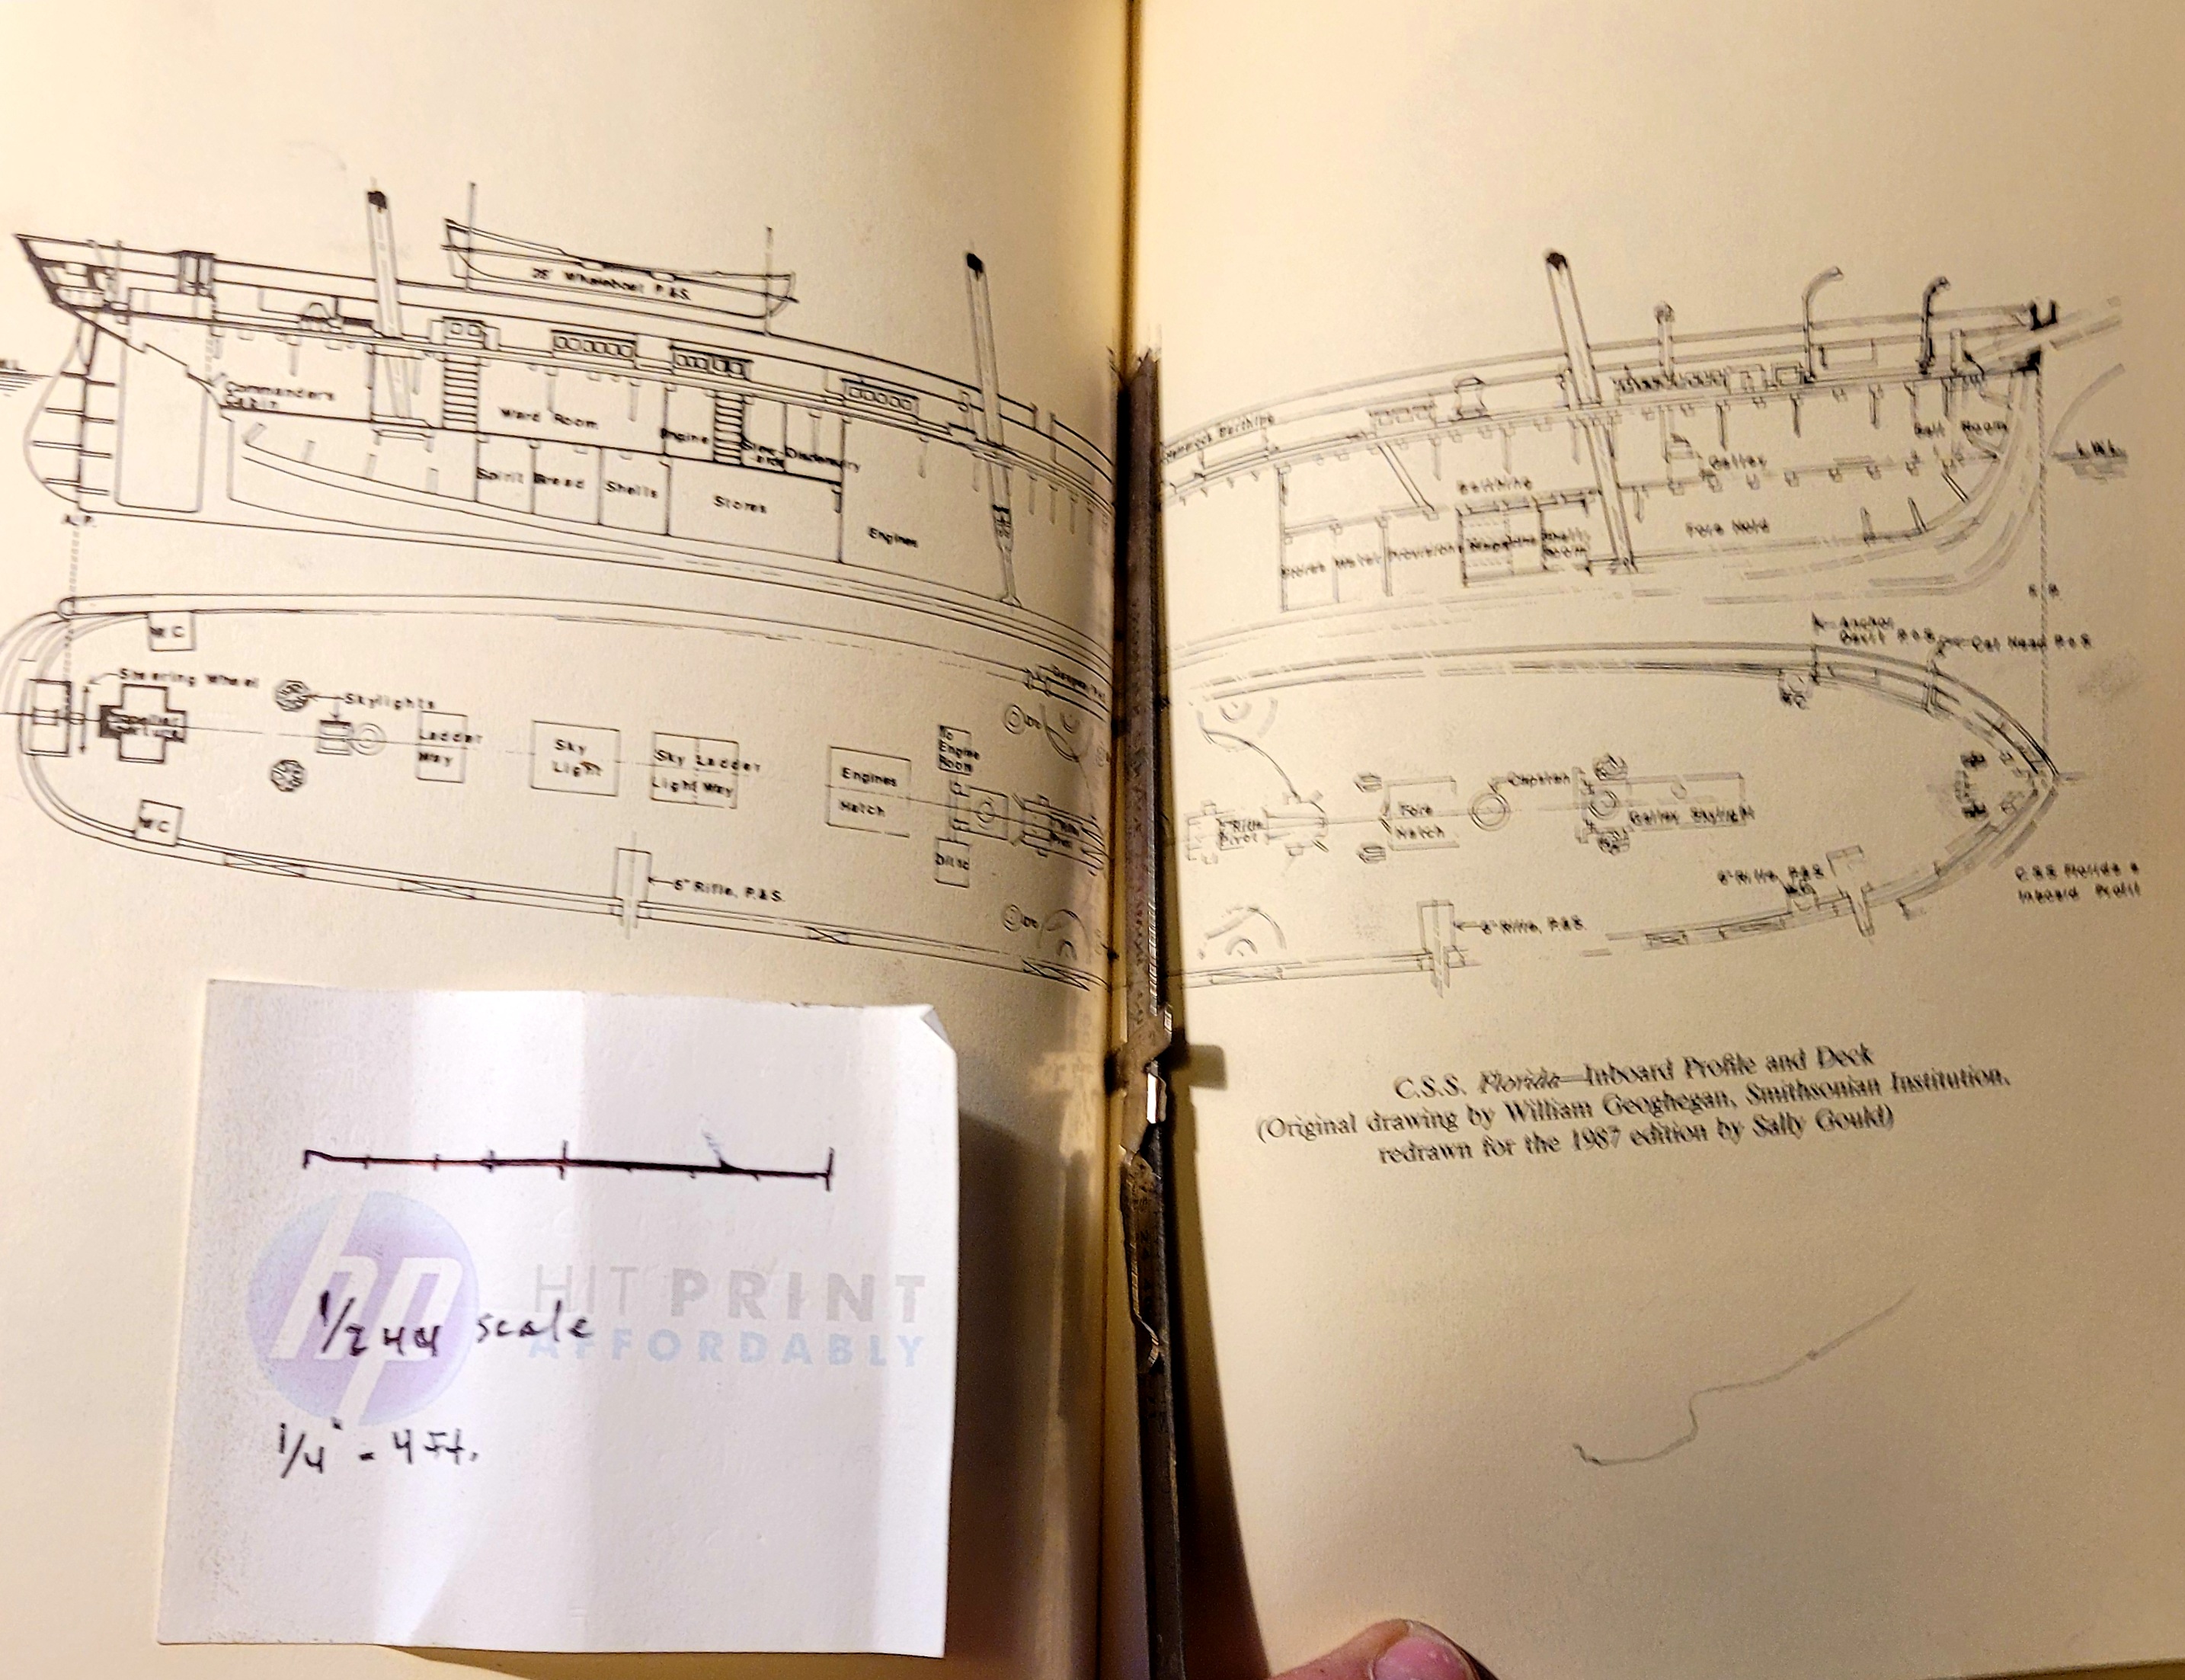 26' Whaleboat P.&S.
Commanders
Cabin
Ward Room
Engine
Dispensary
Spirit
Bread
Shells
Stores
Engines
A.P.
WC
Steering Wheel
Skylights
Propeller
Ladder
Way
Sky
Light
Sky Ladder
Light Way
Engines
Hatch
To
Engine
Room
Ditto
WC
6" Rifle, P.&S.
Hammock Berthing
Berthing
Galley
Sail Room
L.W.L.
Stores
Water
Provisions
Magazine
Shell
Room
Fore Hold
F.P.
Anchor
Davit P.&S.
Cat Head P.&S.
WC
Rifle
Pivot
Fore
Hatch
Capstan
Galley Skylight
6" Rifle, P.&S.
6" Rifle, P.&S.
C.S.S. Florida
Inboard Profil
C.S.S. Florida—Inboard Profile and Deck
(Original drawing by William Geoghegan, Smithsonian Institution,
redrawn for the 1987 edition by Sally Gould)
hp
HIT PRINT
AFFORDABLY
scale
1/4" - 4 Ft.